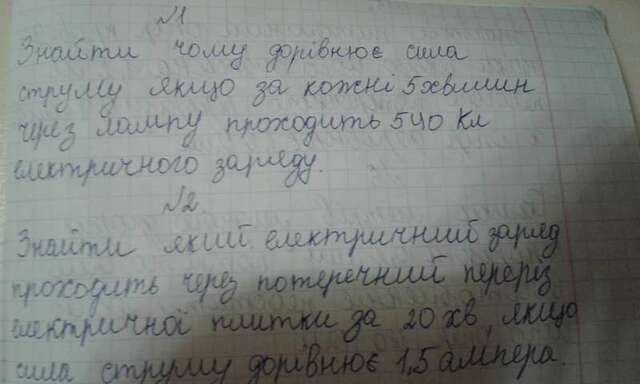 №1
Знайти чому дорівнює сила
струму якщо за кожні 5хвилин
через лампу проходить 540 Кл
електричного заряду.
№2
Знайти який електричний заряд
проходить через поперечний переріз
електричної плитки за 20 хв, якщо
сила струму дорівнює 1,5 ампера.